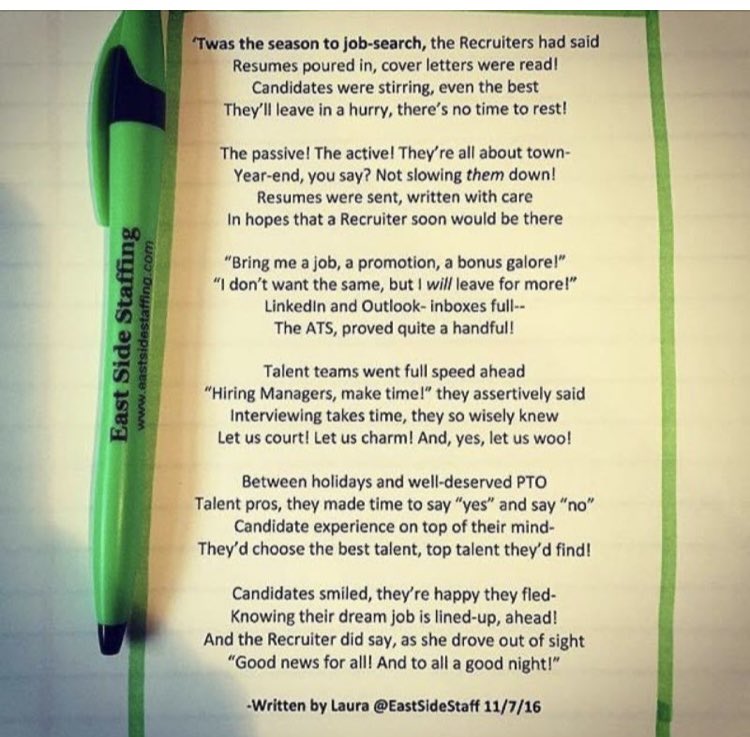 'Twas the season to job-search, the Recruiters had said
Resumes poured in, cover letters were read!
Candidates were stirring, even the best
They'll leave in a hurry, there's no time to rest!
The passive! The active! They're all about town-
Year-end, you say? Not slowing them down!
Resumes were sent, written with care
In hopes that a Recruiter soon would be there
"Bring me a job, a promotion, a bonus galore!"
"I don't want the same, but I will leave for more!"
LinkedIn and Outlook- inboxes full--
The ATS, proved quite a handful!
Talent teams went full speed ahead
"Hiring Managers, make time!" they assertively said
Interviewing takes time, they so wisely knew
Let us court! Let us charm! And, yes, let us woo!
Between holidays and well-deserved PTO
Talent pros, they made time to say "yes" and say "no"
Candidate experience on top of their mind-
They'd choose the best talent, top talent they'd find!
Candidates smiled, they're happy they fled-
Knowing their dream job is lined-up, ahead!
And the Recruiter did say, as she drove out of sight
"Good news for all! And to all a good night!"
-Written by Laura @EastSideStaff 11/7/16
East Side Staffing
www.eastsidestaffing.com